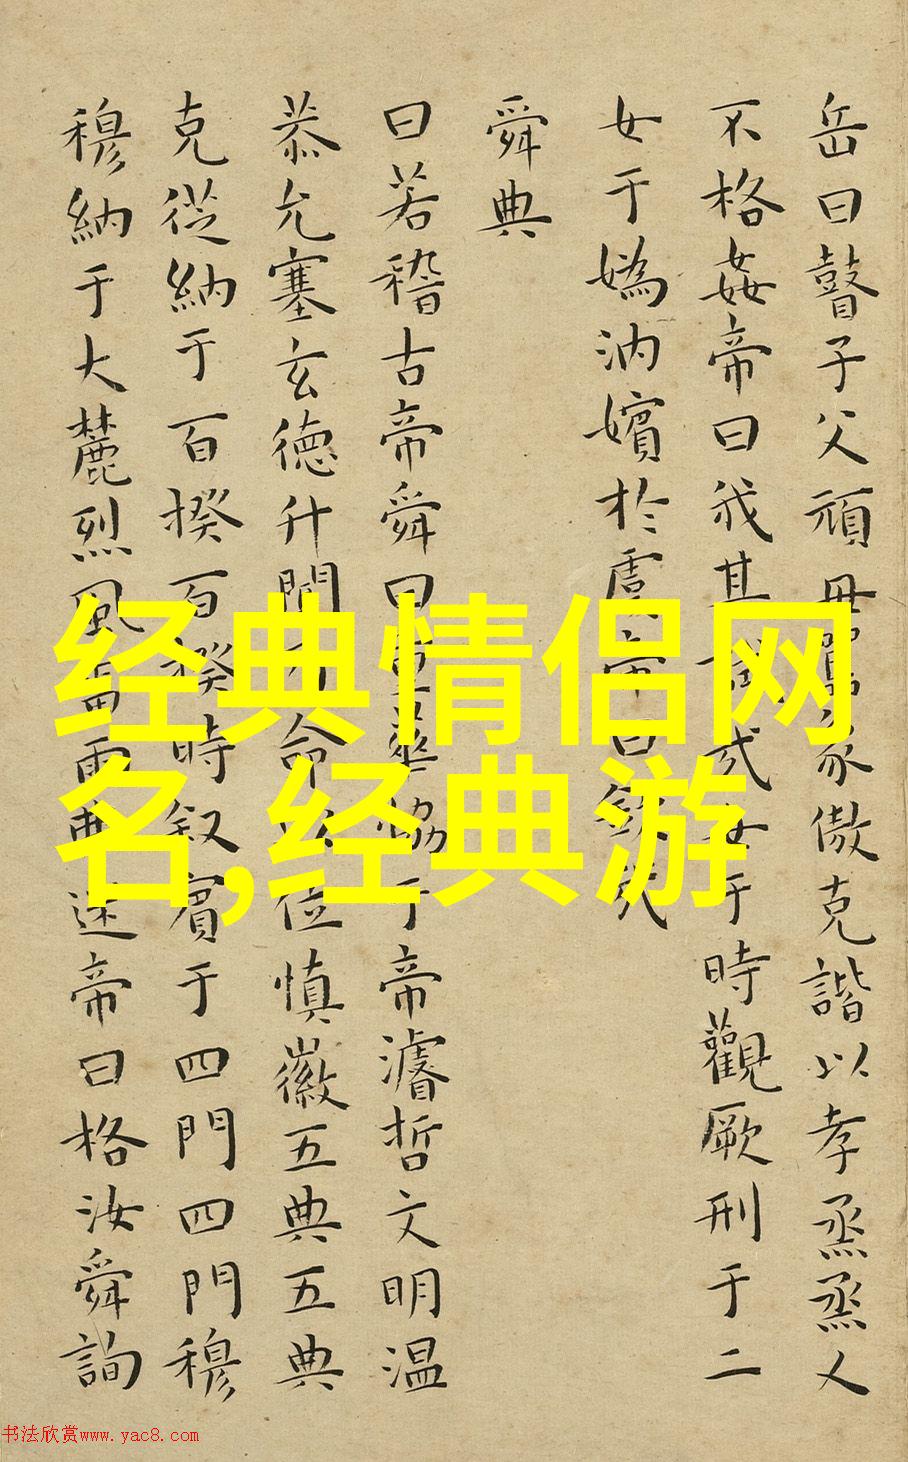 岳曰瞽子父頑母嚚象傲克諧以孝烝烝乂
不格姦帝曰我其試哉女于時觀厥刑于二
女于媯汭嬪於虞帝曰欽哉
舜典
曰若稽古帝舜曰重華協于帝濬哲文明温
恭允塞玄德升聞乃命以位慎徽五典五典
克從納于百揆百揆時叙賓于四門四門穆
穆納于大麓烈風雷雨弗迷帝曰格汝舜詢
经典情侣网
名,经典游
书法欣赏www.yac8.com